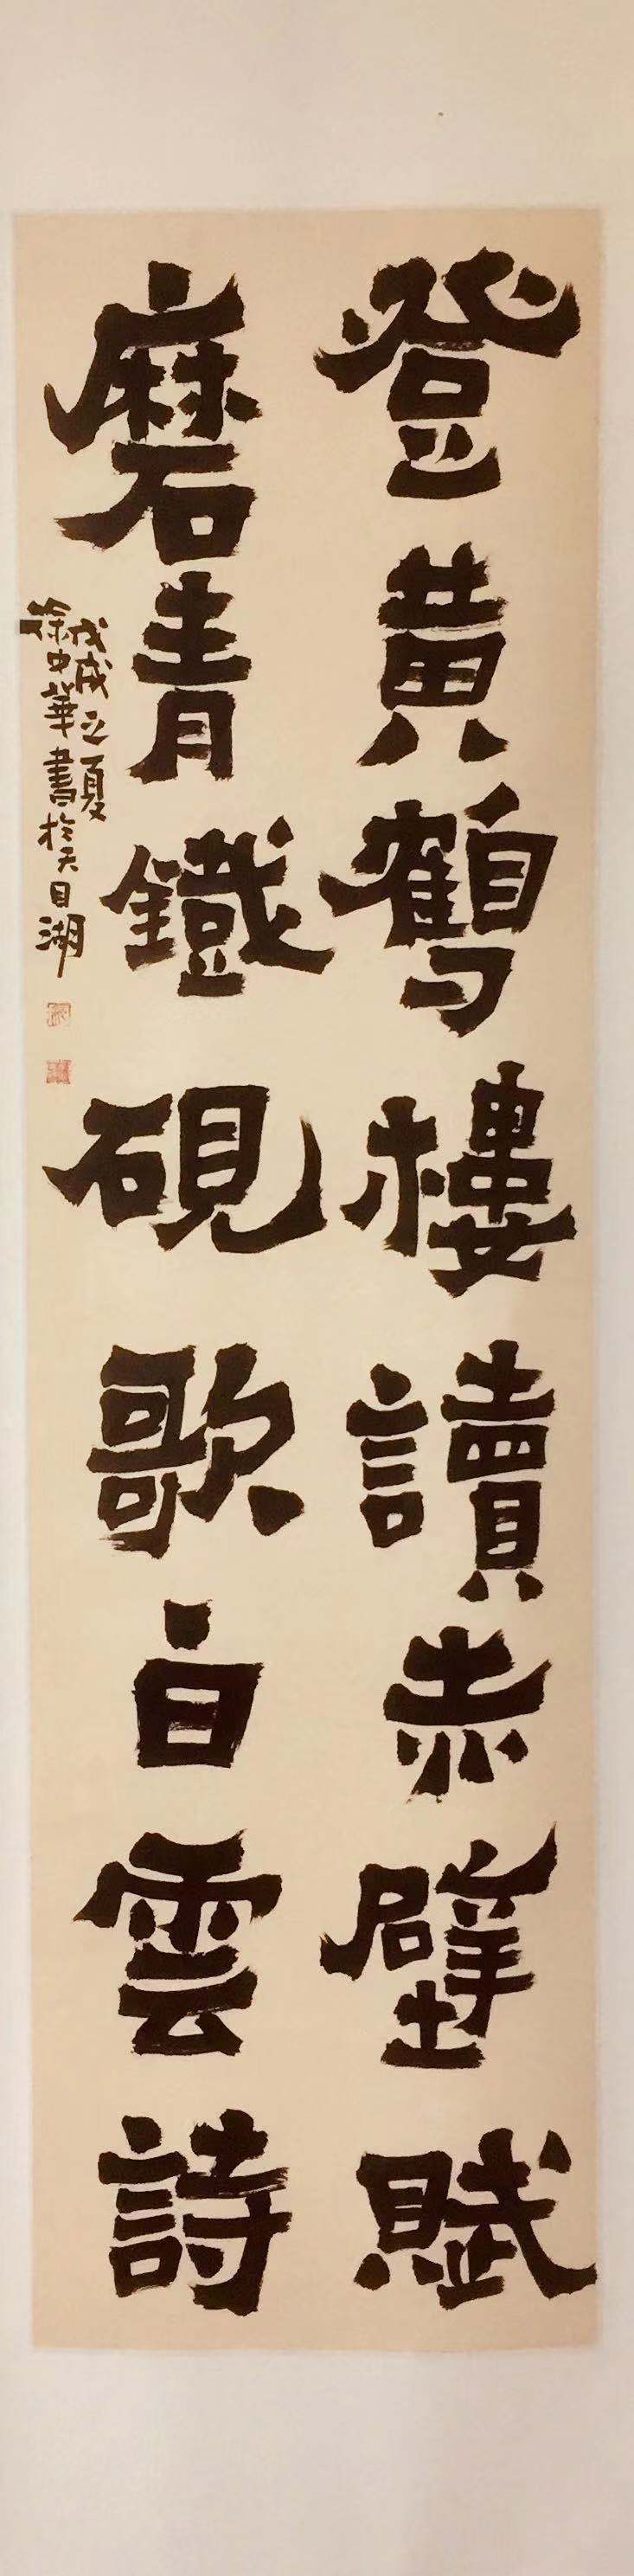 登黄鶴樓讀赤壁賦
磨青鐵硯歌白雲詩
戊戌之夏
徐中華書於天目湖